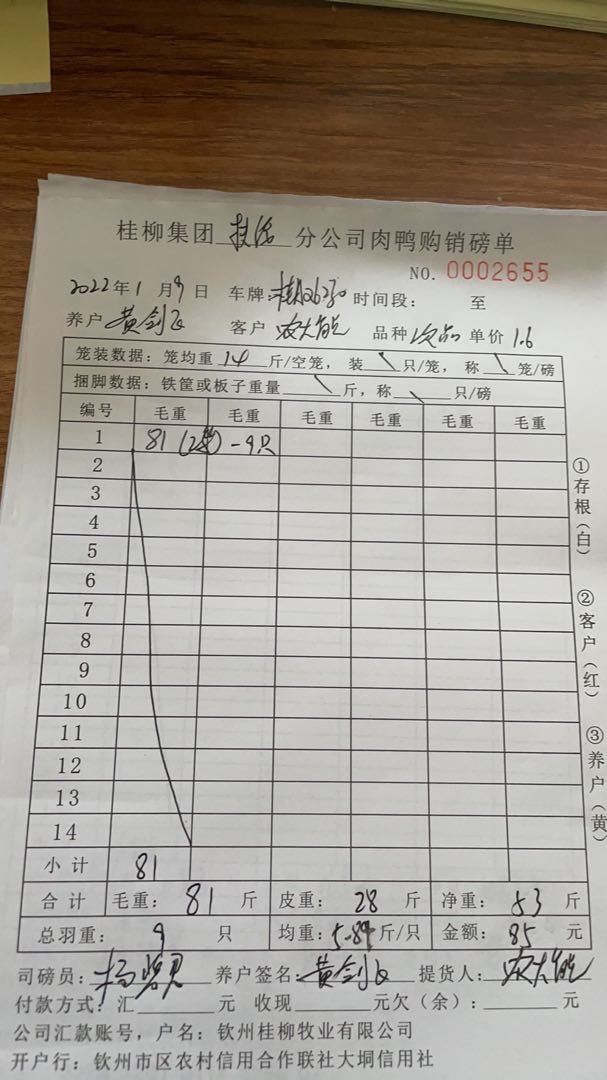 桂柳集团 扶绥 分公司肉鸭购销磅单
NO. 0002655
2022年1月9日 车牌: 时间段: 至
养户 黄剑 客户 农大能 品种 次品 单价 1.6
笼装数据: 笼均重 14 斤/空笼, 装 \ 只/笼, 称 \ 笼/磅
捆脚数据: 铁筐或板子重量 \ 斤, 称 \ 只/磅
编号 毛重 毛重 毛重 毛重 毛重 毛重
1 81 (2笼) -9只
2
3
4
5
6
7
8
9
10
11
12
13
14
小计 81
合计 毛重: 81 斤 皮重: 28 斤 净重: 53 斤
总羽重: 9 只 均重: 5.89 斤/只 金额: 85 元
司磅员: 杨 养户签名: 黄剑 提货人: 农大能
付款方式: 汇 元 收现 元欠(余): 元
公司汇款账号, 户名: 钦州桂柳牧业有限公司
开户行: 钦州市区农村信用合作联社大垌信用社
①存根(白)
②客户(红)
③养户(黄)